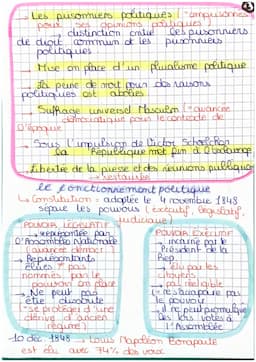 ↳ Les prisonniers politiques (= emprisonnés
pour ses opinions politiques)
↳ distinction entre les prisonniers
de droit commun et les prisonniers
politiques
→ Mise en place d'un pluralisme politique
→ La peine de mort pour des raisons
politiques est abolies
→ Suffrage universel Masculin (= avancée
démocratique pour le contexte de
l'époque
→ Sous l'impulsion de Victor Schoelcher
la République met fin à l'esclavage
Liberté de la presse et des réunions publiques
→ restaurée
le fonctionnement politique
↳ Constitution : adoptée le 4 novembre 1848
sépare les pouvoirs (exécutif, législatif,
judiciaire)
POUVOIR LÉGISLATIF
→ représentée par
l'Assemblée Nationale
(avancée démocr)
→ Représentants
élues ≠ pas
nommés par le
pouvoir en place
→ Ne peut pas
être dissoute
(se protéger d'une
dérive d'ancien
régime)
POUVOIR EXÉCUTIF
→ incarné par le
Président de la
Rep.
→ élu par les
citoyens
→ pas rééligible
→ n'accapare pas
le pouvoir
→ il ne peut promulguer
les lois votées à
l'Assemblée
10 déc. 1848 → Louis Napoléon Bonaparte
est élu avec 74% des voix